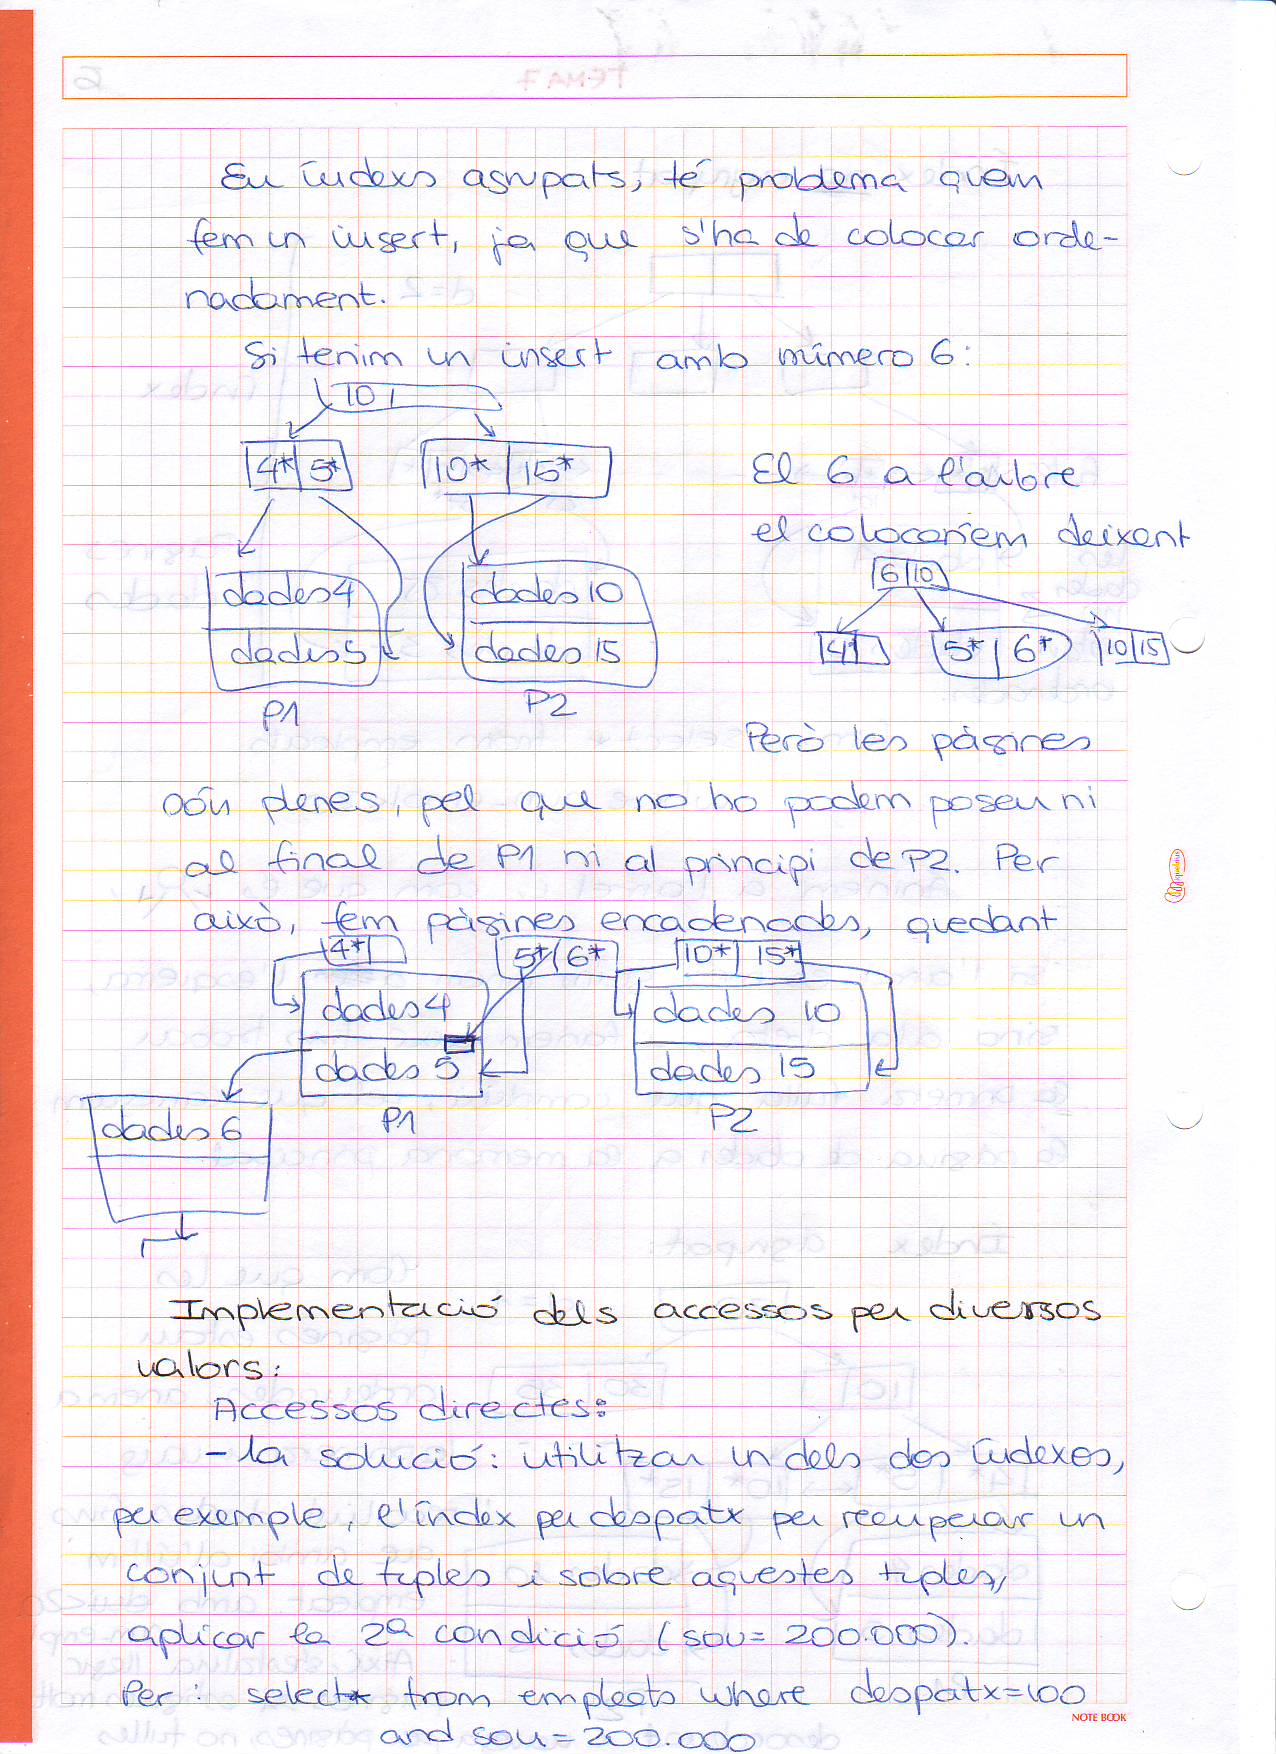 En índexs agrupats, té problema quem
fem un insert, ja que s'ha de colocar orde-
nadament.
Si tenim un insert amb número 6:
10
4* 5* 10* 15*
El 6 a l'arbre
el colocaríem deixant
6 10
dades 4 dades 10
dades 5 dades 15
4* 5* 6* 10 15
P1 P2
Però les pàgines
són plenes, pel que no ho podem posar ni
al final de P1 ni al principi de P2. Per
això, fem pàgines encadenades, quedant
4* 5* 6* 10* 15*
dades 4 dades 10
dades 5 dades 15
dades 6 P1 P2
Implementació dels accessos per diversos
valors:
Accessos directes:
- 1a solució: utilitzar un dels dos índexes,
per exemple, l'índex per despatx per recuperar un
conjunt de tuples i sobre aquestes tuples,
aplicar la 2ª condició (sou = 200.000).
Per: select * from empleats where despatx=100
and sou = 200.000
NOTE BOOK
TEMA 7
6